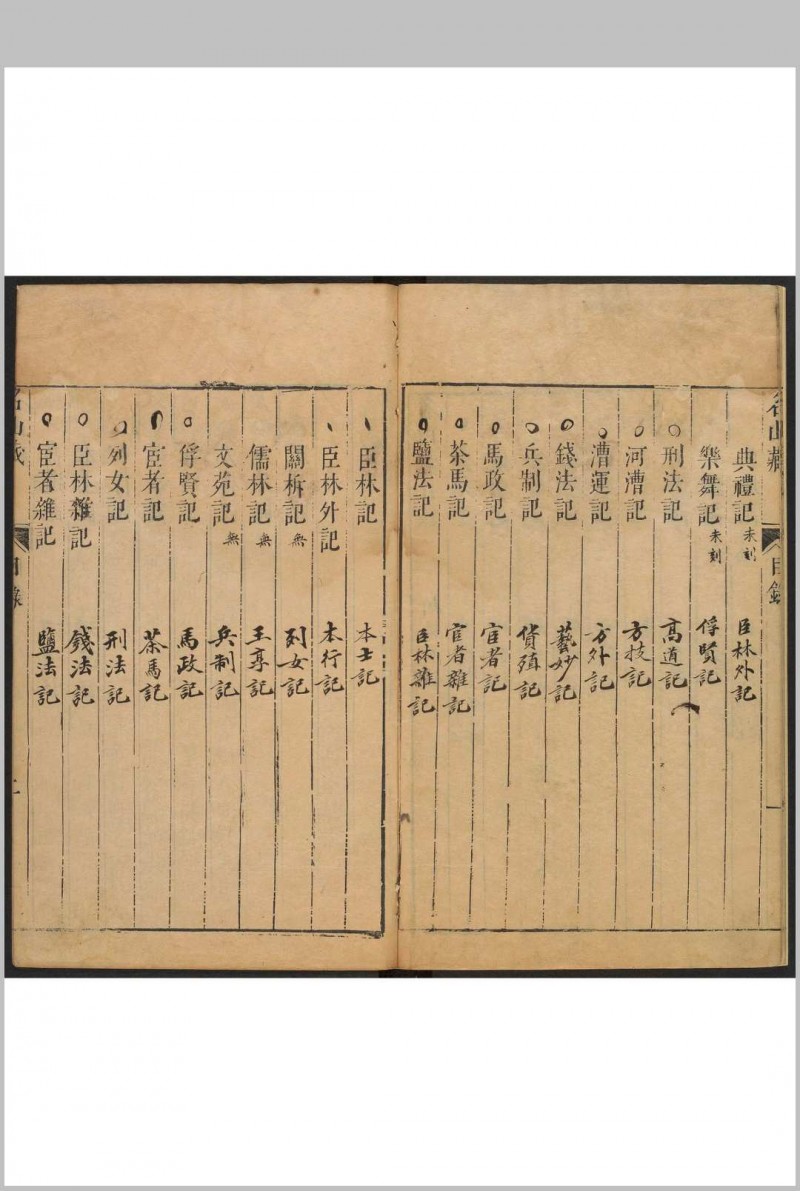 名山藏 目錄 一
典禮記 未刻 臣林外記
樂舞記 未刻 俘賢記
刑法記 高道記
河漕記 方技記
漕運記 方外記
錢法記 藝妙記
兵制記 貨殖記
馬政記 宦者記
茶馬記 宦者雜記
鹽法記 臣林雜記
臣林記 本士記
臣林外記 本行記
關柝記 無 列女記
儒林記 無 王享記
文苑記 無 兵制記
俘賢記 馬政記
宦者記 茶馬記
列女記 刑法記
臣林雜記 錢法記
宦者雜記 鹽法記
名山藏 目錄 二